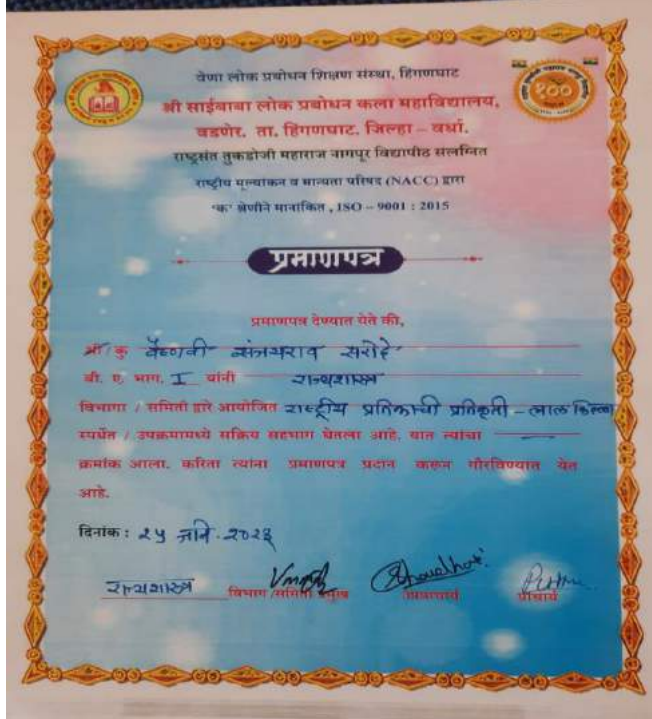 वेणा लोक प्रबोधन शिक्षण संस्था, हिंगणघाट
श्री साईबाबा लोक प्रबोधन कला महाविद्यालय,
वडणेर, ता. हिंगणघाट, जिल्हा – वर्धा.
राष्ट्रसंत तुकडोजी महाराज नागपूर विद्यापीठ संलग्नित
राष्ट्रीय मूल्यांकन व मान्यता परिषद (NACC) द्वारा
"क" श्रेणीने मानांकित , ISO – 9001 : 2015
१००
प्रमाणपत्र
प्रमाणपत्र देण्यात येते की,
श्री/कु वैष्णवी संजयराव सरोदे
बी. ए. भाग. I यांनी राज्यशास्त्र
विभागा / समिती द्वारे आयोजित राष्ट्रीय प्रतिकाची प्रतिकृती – लाल किल्ला
स्पर्धेत / उपक्रमामध्ये सक्रिय सहभाग घेतला आहे. यात त्यांचा
क्रमांक आला. करिता त्यांना प्रमाणपत्र प्रदान करून गौरविण्यात येत
आहे.
दिनांक : २५ जाने. २०२३
राज्यशास्त्र विभाग /समिती प्रमुख उपप्राचार्य प्राचार्य